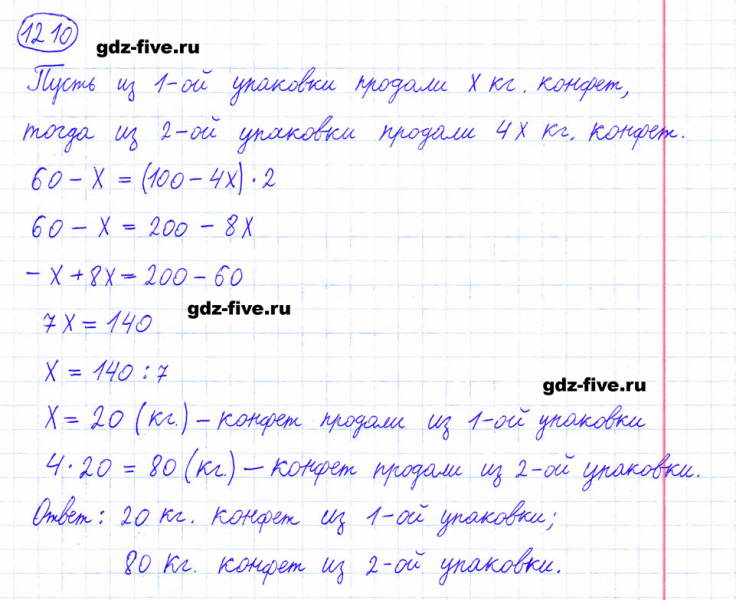 1210
gdz-five.ru
Пусть из 1-ой упаковки продали х кг. конфет,
тогда из 2-ой упаковки продали 4х кг. конфет.
60 - х = (100 - 4х) · 2
60 - х = 200 - 8х
- х + 8х = 200 - 60
gdz-five.ru
7х = 140
х = 140 : 7
gdz-five.ru
х = 20 (кг.) - конфет продали из 1-ой упаковки
4 · 20 = 80 (кг.) - конфет продали из 2-ой упаковки.
Ответ: 20 кг. конфет из 1-ой упаковки;
80 кг. конфет из 2-ой упаковки.